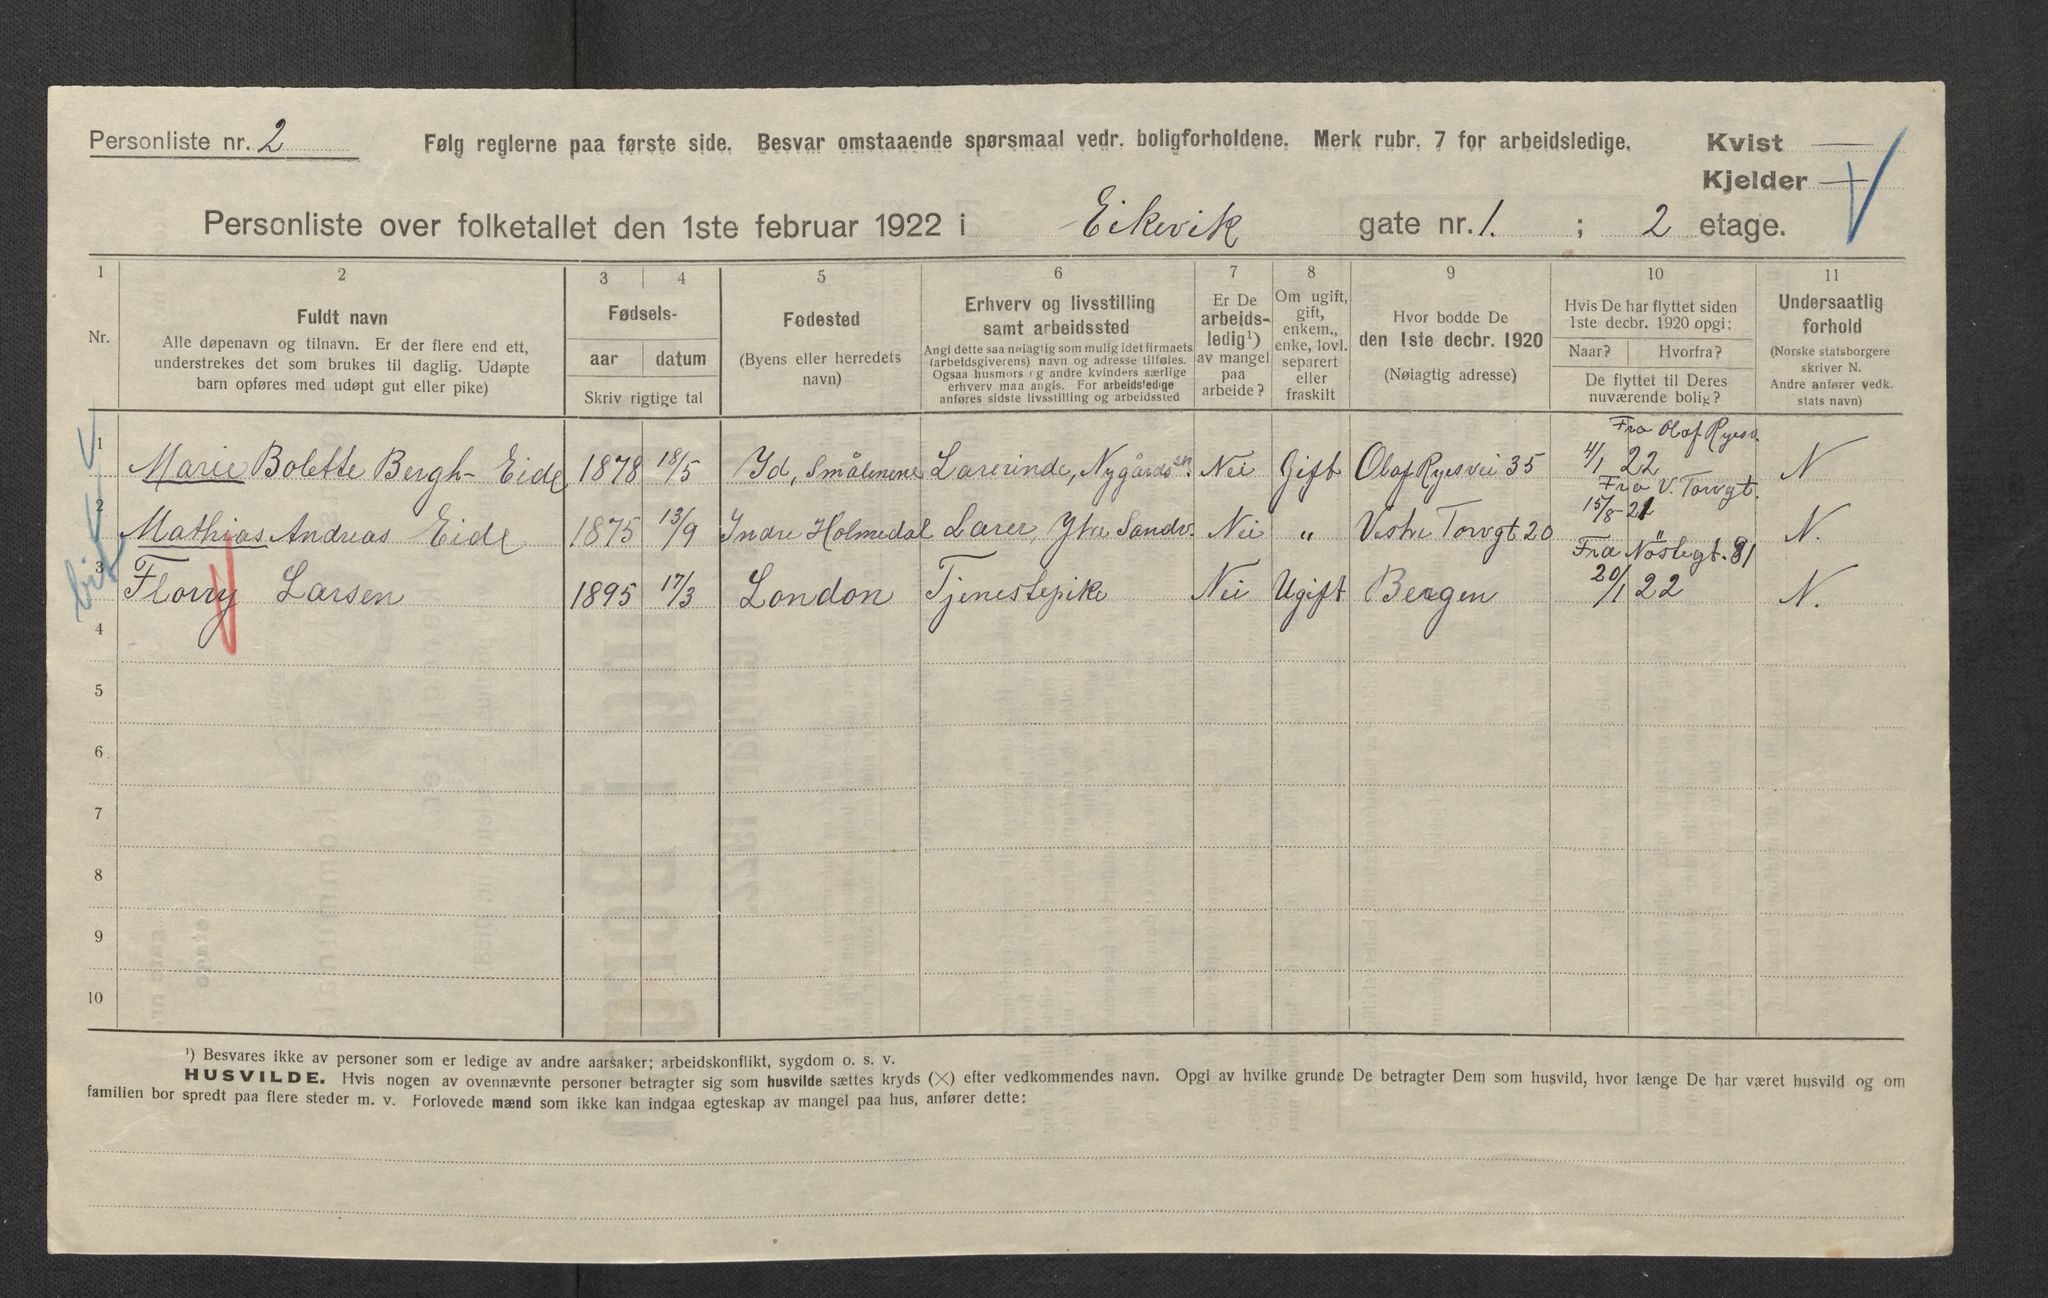 Personliste nr. 2
Følg reglerne paa første side. Besvar omstaaende spørsmaal vedr. boligforholdene. Merk rubr. 7 for arbeidsledige.
Kvist —
Kjelder —
Personliste over folketallet den 1ste februar 1922 i Eikevik gate nr. 1. ; 2 etage.
1 2 3 4 5 6 7 8 9 10 11
Nr.
Fuldt navn
Alle døpenavn og tilnavn. Er der flere end ett,
understrekes det som brukes til daglig. Udøpte
barn opføres med udøpt gut eller pike)
Fødsels-
aar datum
Skriv rigtige tal
Fødested
(Byens eller herredets
navn)
Erhverv og livsstilling
samt arbeidssted
Angi dette saa nøiagtig som mulig idet firmaets
(arbeidsgiverens) navn og adresse tilføies.
Ogsaa husmors og andre kvinders særlige
erhverv maa angis. For arbeidsledige
anføres sidste livsstilling og arbeidssted
Er De
arbeids-
ledig¹)
av mangel
paa
arbeide?
Om ugift,
gift,
enkem.,
enke, lovl.
separert
eller
fraskilt
Hvor bodde De
den 1ste decbr. 1920
(Nøiagtig adresse)
Hvis De har flyttet siden
1ste decbr. 1920 opgi:
Naar? Hvorfra?
De flyttet til Deres
nuværende bolig?
Undersaatlig
forhold
(Norske statsborgere
skriver N.
Andre anfører vedk.
stats navn)
Fra Olaf Ryesv.
1 Marie Bolette Bergh-Eide 1878 18/5 Id, Smålenene Lærerinde, Nygårds sn. Nei Gift Olaf Ryesvei 35 4/1 22 N
Fra V. Torvgt.
2 Mathias Andreas Eide 1875 13/9 Indre Holmedal Lærer, Ytre Sandv. Nei " Vestre Torvgt 20 15/8-21 " N.
Fra Nöstegt. 81
3 Florry Larsen 1895 17/3 London Tjenestepike Nei Ugift Bergen 20/1 22 N.
4
5
6
7
8
9
10
¹) Besvares ikke av personer som er ledige av andre aarsaker; arbeidskonflikt, sygdom o. s. v.
HUSVILDE. Hvis nogen av ovennævnte personer betragter sig som husvilde sættes kryds (×) efter vedkommendes navn. Opgi av hvilke grunde De betragter Dem som husvild, hvor længe De har været husvild og om
familien bor spredt paa flere steder m. v. Forlovede mænd som ikke kan indgaa egteskap av mangel paa hus, anfører dette: